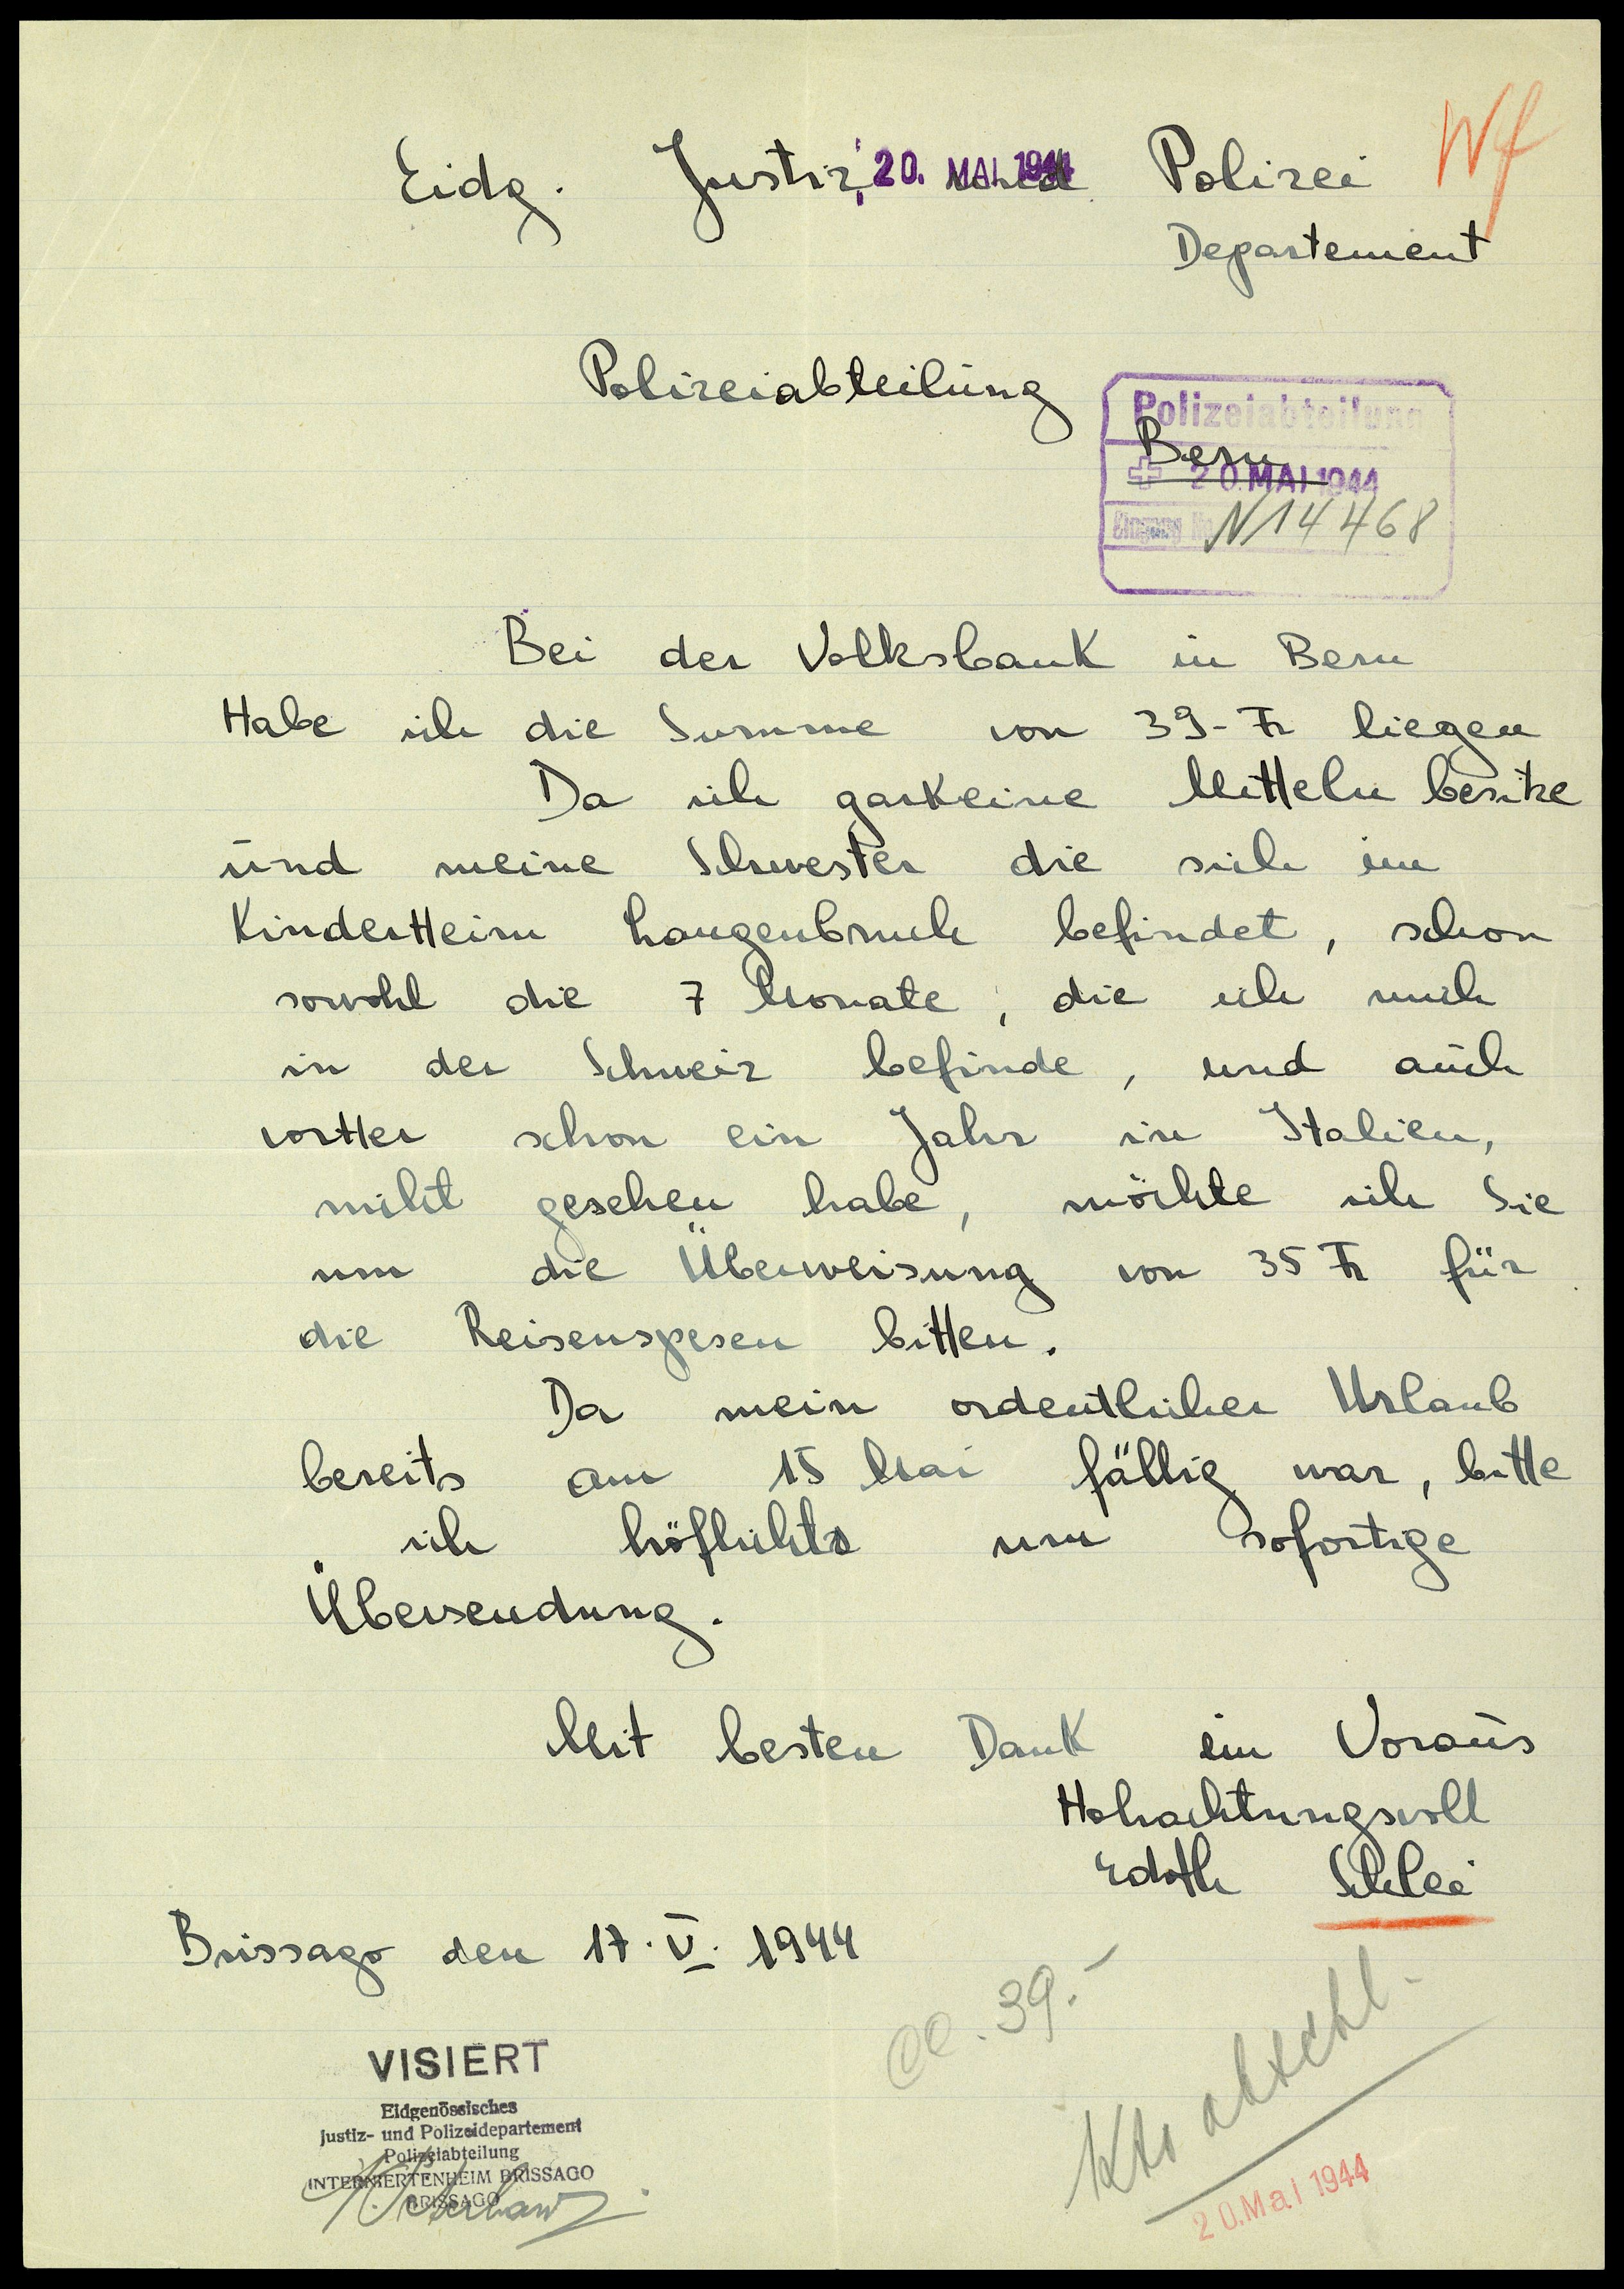 Wf
Eidg. Justiz und Polizei
20. MAI 1944
Departement
Polizeiabteilung
Polizeiabteilung
Bern
20. MAI 1944
Eingang No N14468
Bei der Volksbank in Bern
Habe ich die Summe von 39- Fr liegen
Da ich garkeine Mitteln besitze
und meine Schwester die sich im
KinderHeim Langenbruch befindet, schon
sowohl die 7 Monate, die ich mich
in der Schweiz befinde, und auch
vorHer schon ein Jahr in Italien,
nicht gesehen habe, möchte ich Sie
um die Überweisung von 35 Fr für
die Reisenspesen bitten.
Da mein ordentlicher Urlaub
bereits am 15 Mai fällig war, bitte
ich höflichts um sofortige
Übersendung.
Mit besten Dank im Voraus
Hohachtungsvoll
Edith Schlei
Brissago den 17. V. 1944
39.-
Kto abschl.
20. Mai 1944
VISIERT
Eidgenössisches
Justiz- und Polizeidepartement
Polizeiabteilung
INTERNIERTENHEIM BRISSAGO
BRISSAGO